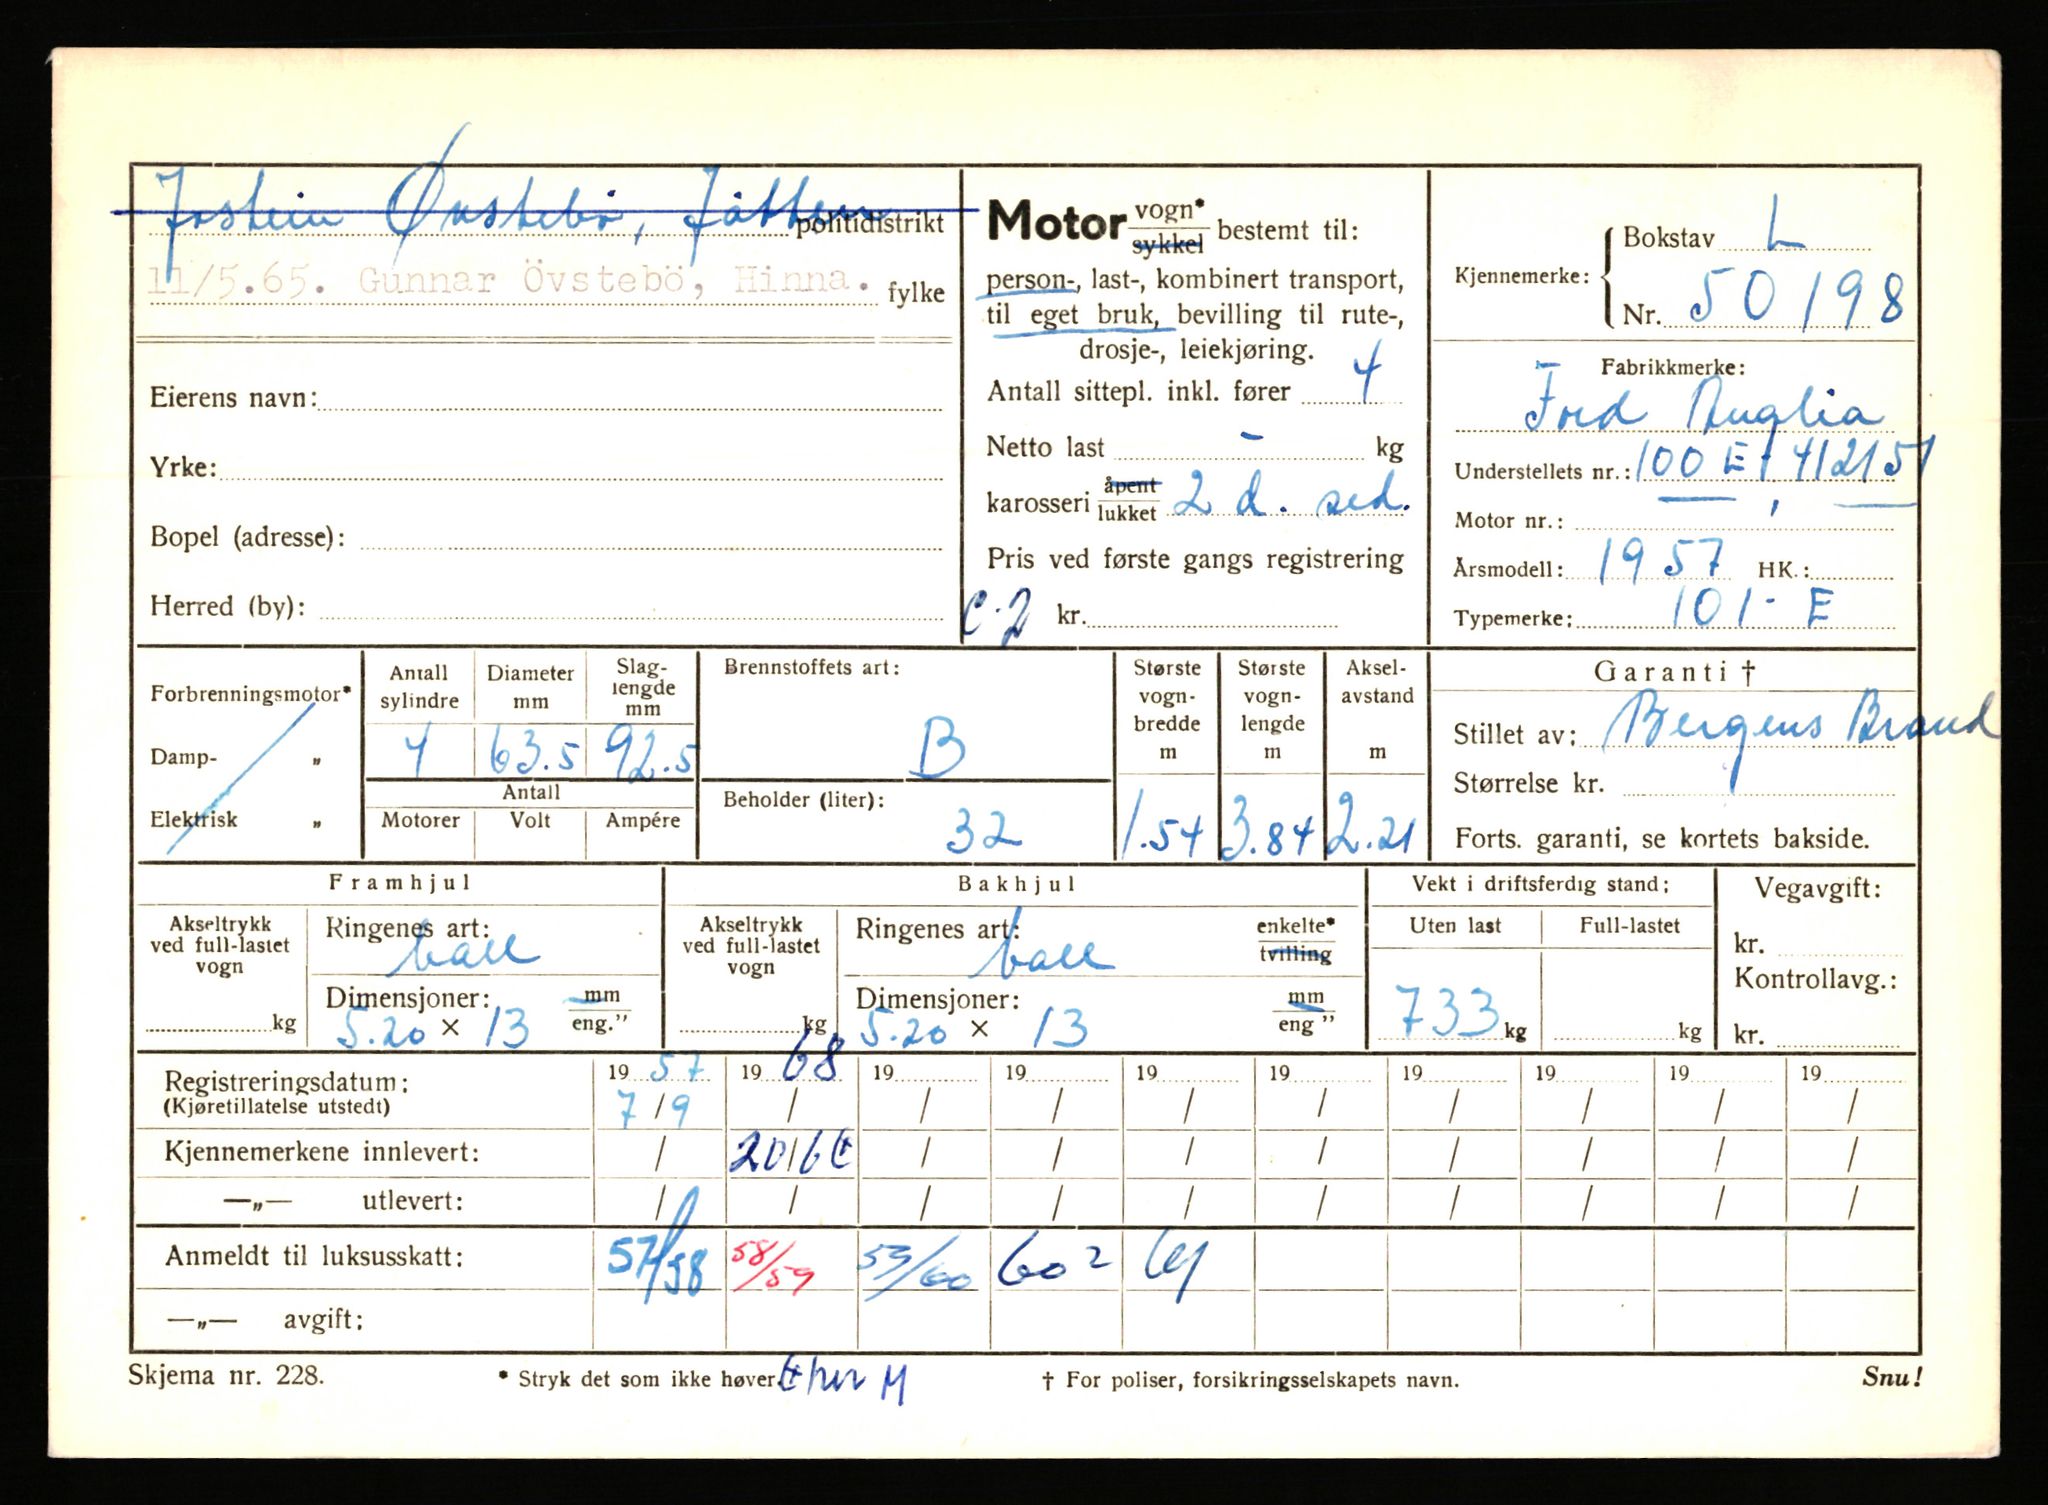 Jostein Øvstebö, Jåtten politidistrikt
11/5.65. Gunnar Övstebö, Hinna. fylke
Eierens navn:
Yrke:
Bopel (adresse):
Herred (by):
Motor vogn* sykkel bestemt til:
person-, last-, kombinert transport,
til eget bruk, bevilling til rute-,
drosje-, leiekjøring.
Antall sittepl. inkl. fører 4
Netto last - kg
karosseri åpent lukket 2 d. sed.
Pris ved første gangs registrering
C-2 kr.
Kjennemerke: Bokstav L
Nr. 50198
Fabrikkmerke:
Ford Anglia
Understellets nr.: 100 E, 412151
Motor nr.:
Årsmodell: 1957 HK.:
Typemerke: 101-E
Forbrenningsmotor*
Damp- „
Elektrisk „
Antall sylindre 4
Diameter mm 63.5
Slag-lengde mm 92.5
Antall
Motorer Volt Ampére
Brennstoffets art:
B
Beholder (liter):
32
Største vogn-bredde m 1.54
Største vogn-lengde m 3.84
Aksel-avstand m 2.21
Garanti †
Stillet av: Bergens Brand
Størrelse kr.
Forts. garanti, se kortets bakside.
Framhjul
Akseltrykk ved full-lastet vogn kg
Ringenes art: ball
Dimensjoner: mm eng."
5.20 × 13
Bakhjul
Akseltrykk ved full-lastet vogn kg
Ringenes art: ball enkelte* tvilling
Dimensjoner: mm eng "
5.20 × 13
Vekt i driftsferdig stand:
Uten last Full-lastet
733 kg kg
Vegavgift:
kr.
Kontrollavg.:
kr.
Registreringsdatum: 19 57 19 68 19 19 19 19 19 19 19 19
(Kjøretillatelse utstedt) 7/9 / / / / / / / / /
Kjennemerkene innlevert: / 20/6 / / / / / / / /
—„— utlevert: / / / / / / / / / /
Anmeldt til luksusskatt: 57/58 58/59 59/60 60 2 61
—„— avgift:
Skjema nr. 228. * Stryk det som ikke høver. † For poliser, forsikringsselskapets navn. Snu!